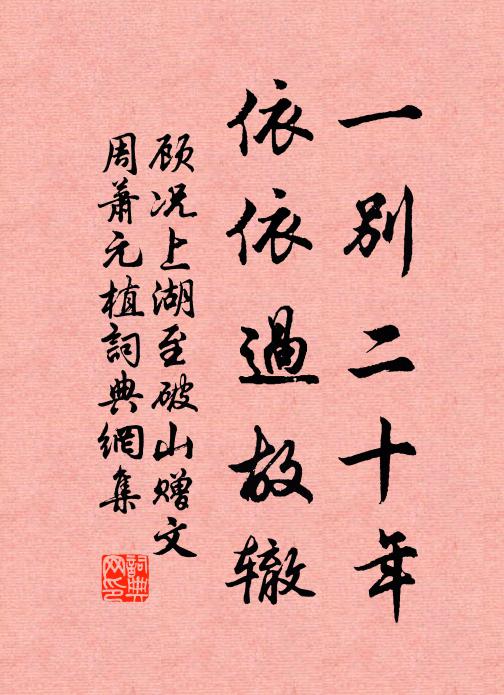 一别二十年
依依过故辙
顾况上湖至破山赠文
周萧元植詞典網集
詞典网印